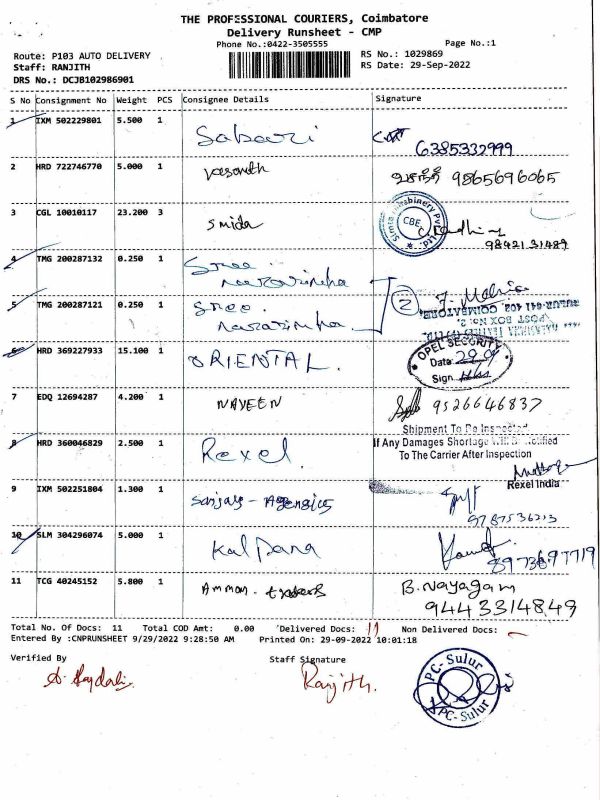 THE PROFESSIONAL COURIERS, Coimbatore
Delivery Runsheet - CMP
Phone No.:0422-3505555
Page No.:1
Route: P103 AUTO DELIVERY
RS No.: 1029869
Staff: RANJITH
RS Date: 29-Sep-2022
DRS No.: DCJB102986901
S No Consignment No Weight PCS Consignee Details Signature
1 IXM 502229801 5.500 1 Sabari
6385332999
2 HRD 722746770 5.000 1 Vasanth வசந்தி 9865696065
3 CGL 10010117 23.200 3 Smida
CBE
9842131489
4 TMG 200287132 0.250 1 Sree narasimha
5 TMG 200287121 0.250 1 Sree narasimha
2
SULUR-641 402. COIMBATORE
POST BOX NO: 2,
6 HRD 369227933 15.100 1 ORIENTAL.
OPEL SECURITY
Date 29/9
Sign
7 EDQ 12694287 4.200 1 NAVEEN 9526646837
Shipment To Be Inspected
If Any Damages Shortage Will Be Notified
To The Carrier After Inspection
8 HRD 360046829 2.500 1 Rexel.
Rexel India
9 IXM 502251804 1.300 1 Sanjay - Agencies
9787536213
10 SLM 304296074 5.000 1 Kalpana
8973697719
11 TCG 40245152 5.800 1 Amman. B. Nayagam
9443314849
Total No. Of Docs: 11 Total COD Amt: 0.00 Delivered Docs: 11 Non Delivered Docs: -
Entered By :CNPRUNSHEET 9/29/2022 9:28:50 AM Printed On: 29-09-2022 10:01:18
Verified By Staff Signature
Ranjith.
PC-Sulur
PC-Sulur